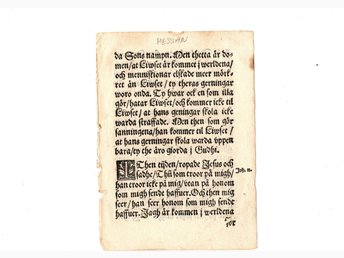 MESSAN
da Sons nampn. Men thetta är do-
men/at Liwset är kommet j werldena/
och menniskionar elskade meer mörk-
ret än Liwset/ ty theras gerningar
woro onda. Ty hwar ock en som illa
gör/hatar Liwset/och kommer icke til
Liwset / at hans gerningar skola icke
warda straffade. Men then som gör
sanningena/han kommer til Liwset /
at hans gerningar skola warda uppen
bara/ty the äro giorda j Gudhi.
I Then tijden/ropade Jesus och
sadhe/Thū som troor på migh/
han troor icke på mig/utan på honom
som migh sende haffuer. Och then mig
seer/ han seer honom som migh sende
haffuer. Jagh är kommen j werldena
Joh. 12.